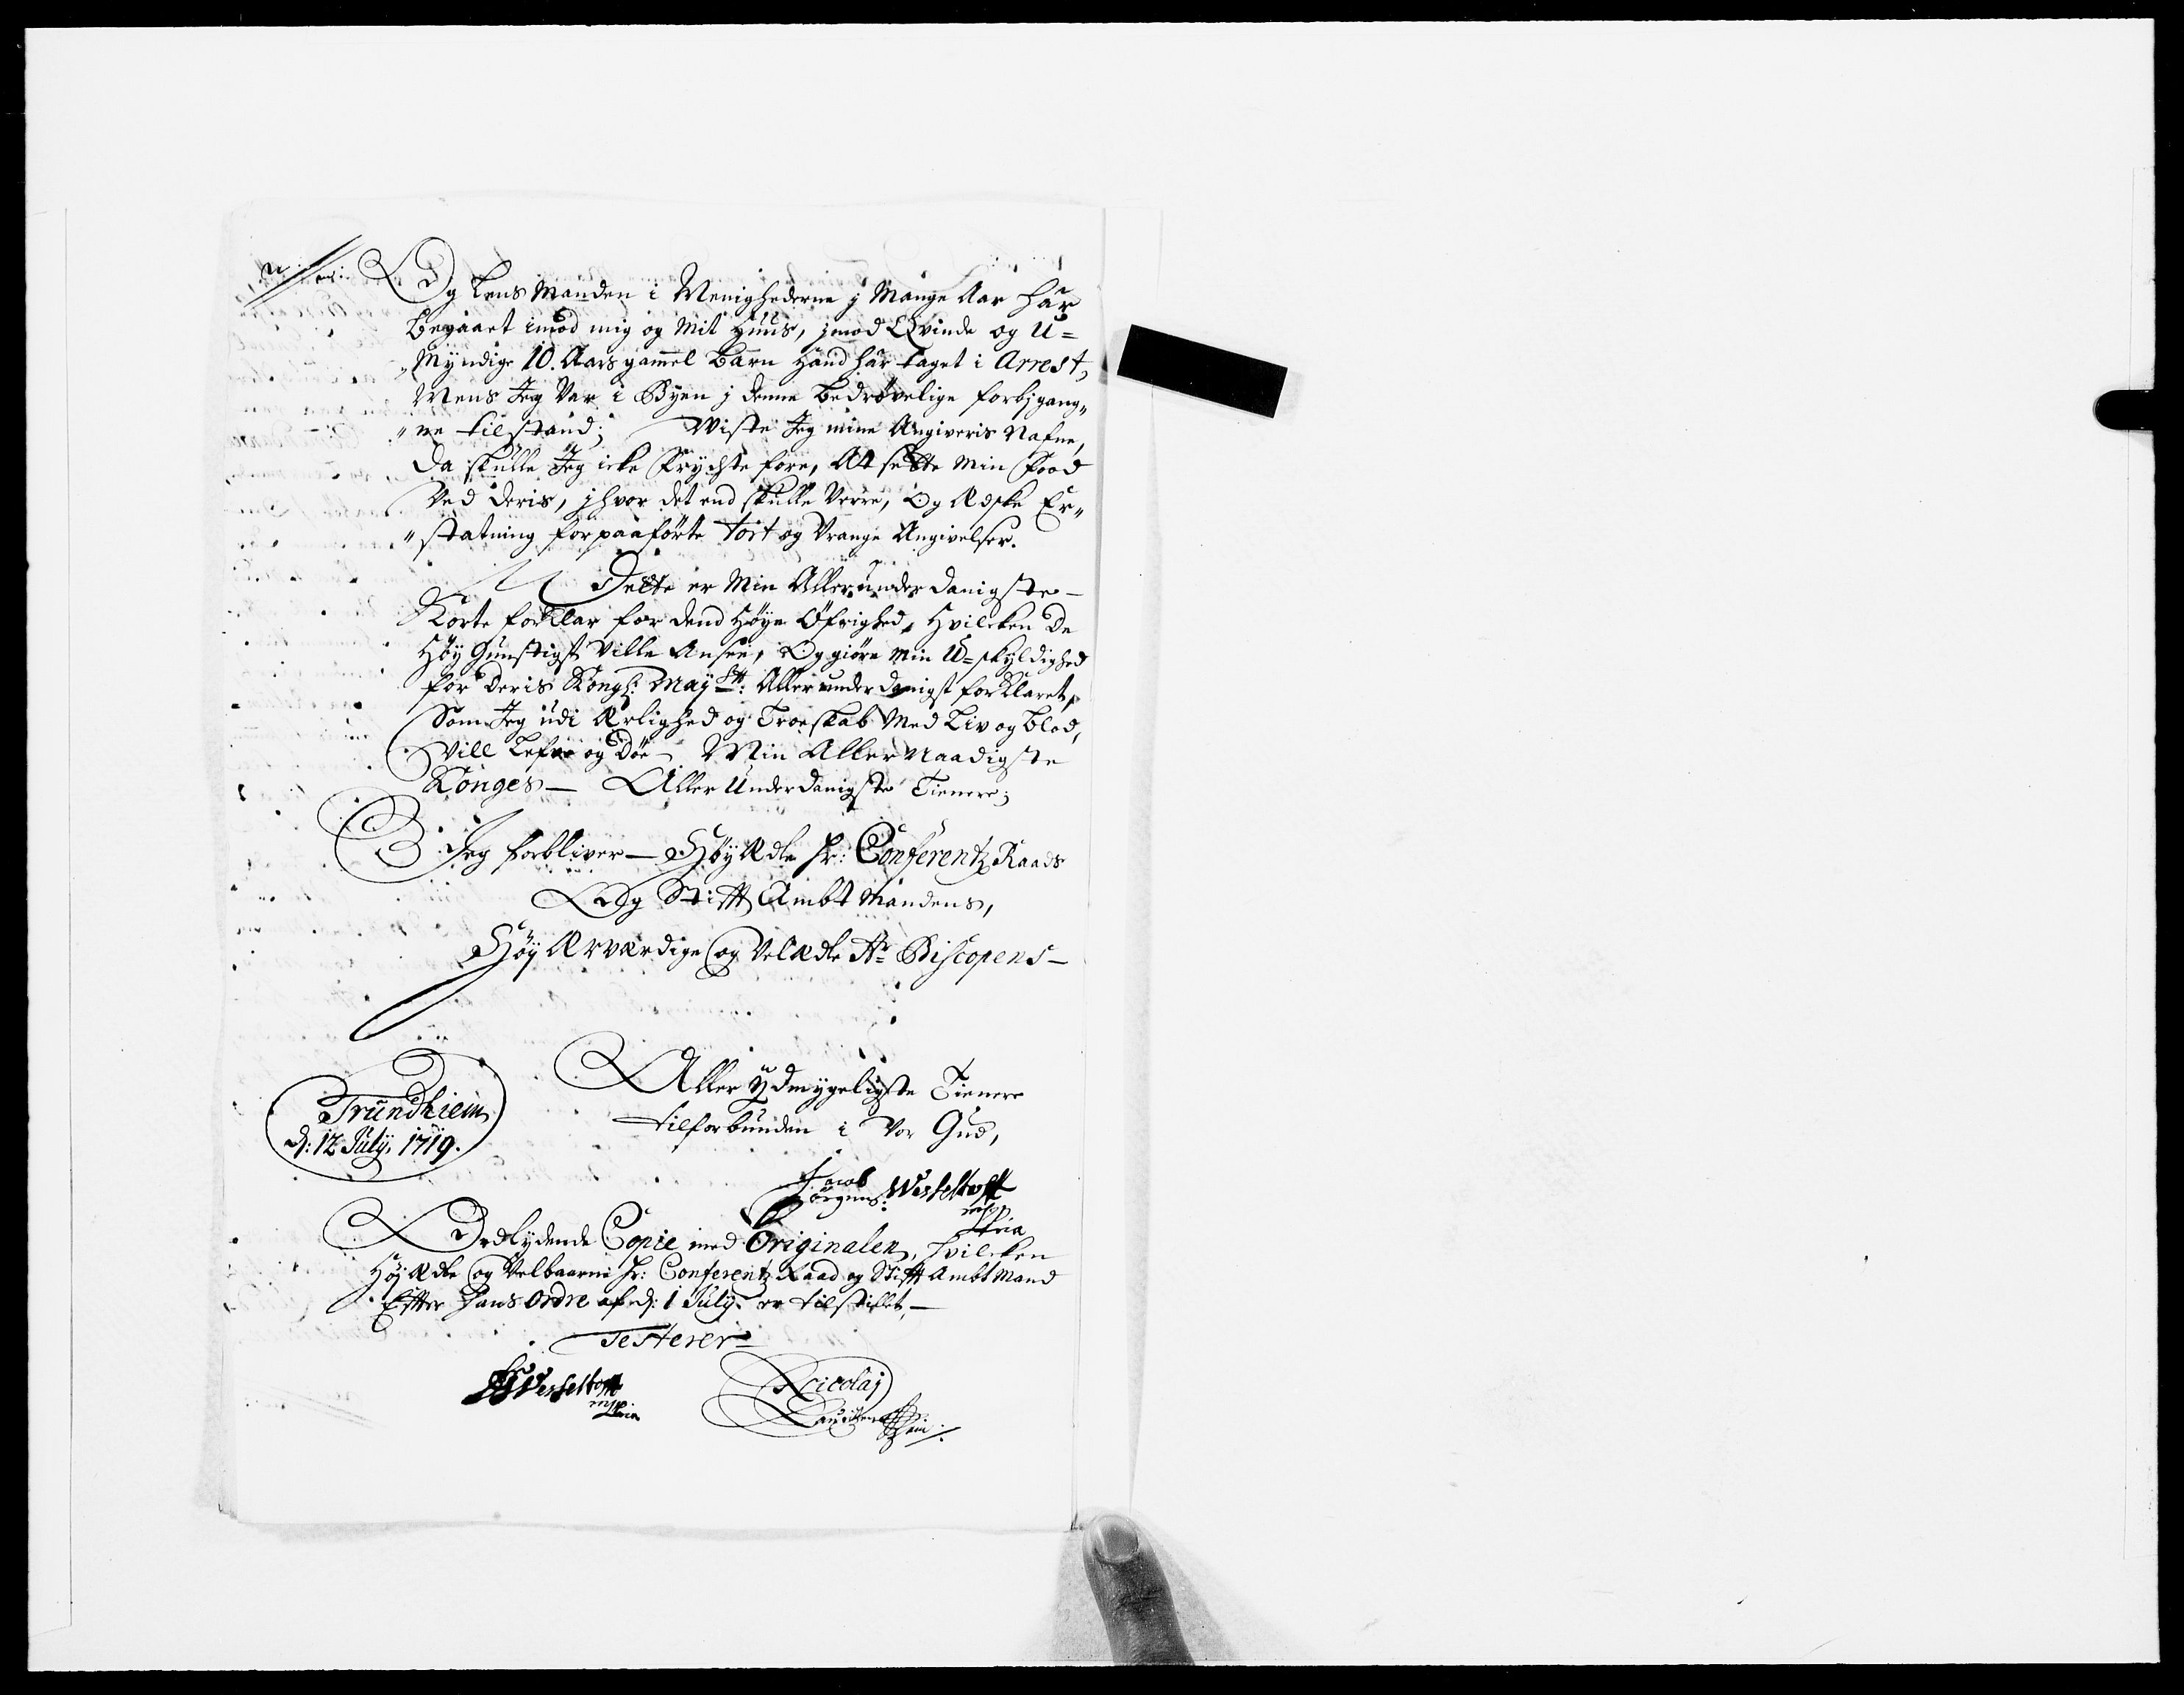 Og Lens Manden i Menighederne j Mange Aar har
begaaet imod mig og Mit Huus, jmod Qvinde og U=
Myndige 10. Aars gammel Barn Hand har taget i Arrest,
Mens Jeg Var i Byen j denne bedrøvelige forbjgang„
„ne tilstand; Wiste Jeg mine Angiveris Nafne,
Da skulle Jeg icke Frychte fore, At sette Min Food
Ved deris, jhvor det end skulle Verre, Og Ædske Er„
„statning for paaførte tort og Vrange Angivelser.
Dette er Min Allerunderdanigste
Korte forklar for dend Høye Øfrighed, Hvilcken De
Høy Gunstigst Ville Ansee, Og giøre Min U=skyldighed
for Deris Kongl: Mayst: Allerunderdanigst forklaret,
Som Jeg udi Ærlighed og Troeskab Med Liv og blod,
Vill Lefve og Døe Min Aller Naadigste
Konges — Aller Underdanigste Tienere;
Jeg forbliver — Høy Ædle Hr: Conferentz Raads
Og Stifft Ambt Mandens,
Høy Ærværdige og Velædle Hr Biscopens —
Aller Ydmygeligste Tienere
tilforbunden i Vor Gud,
Trundhiem
d: 12 July, 1719.
Jacob
Jørgens: Wesseltofft
mpp
Ordlydende Copie med Originalen, Hvilcken
Høy Ædle og Velbaarne Hr: Conferentz Raad og Stifft Ambt Mand
Effter Hans Ordre af d: 1 July er tilstillet, —
Testerer
Wesseltofft
Nicolaj